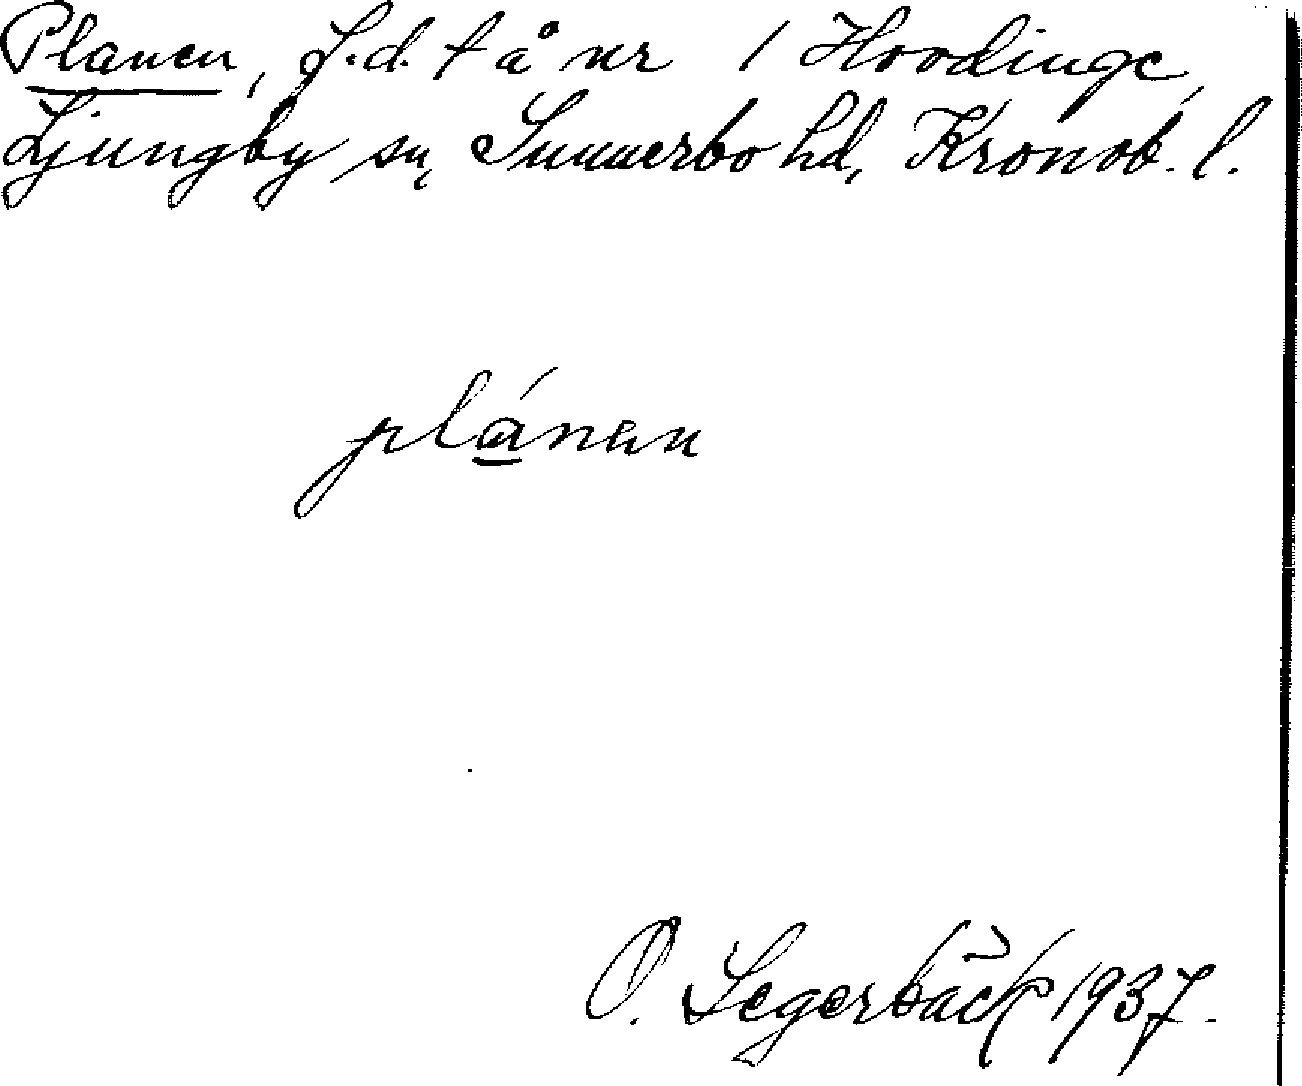 Planen, f.d. t å nr 1 Hovdinge,
Ljungby sn, Sunnerbo hd, Kronob. l.
plánen
O. Segerbäck 1937.